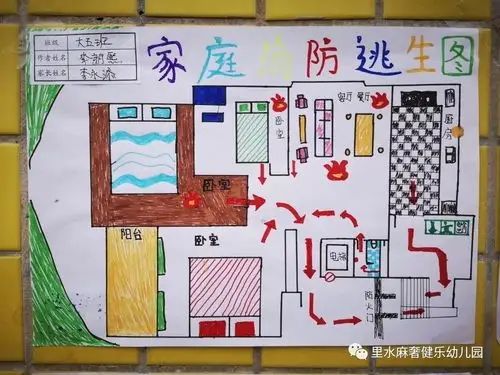 班级 大五班
作者姓名
家长姓名 李永添
家庭消防逃生图
卧室
客厅 餐厅
厨房
卧室
阳台
卧室
电梯
防火门
里水麻奢健乐幼儿园